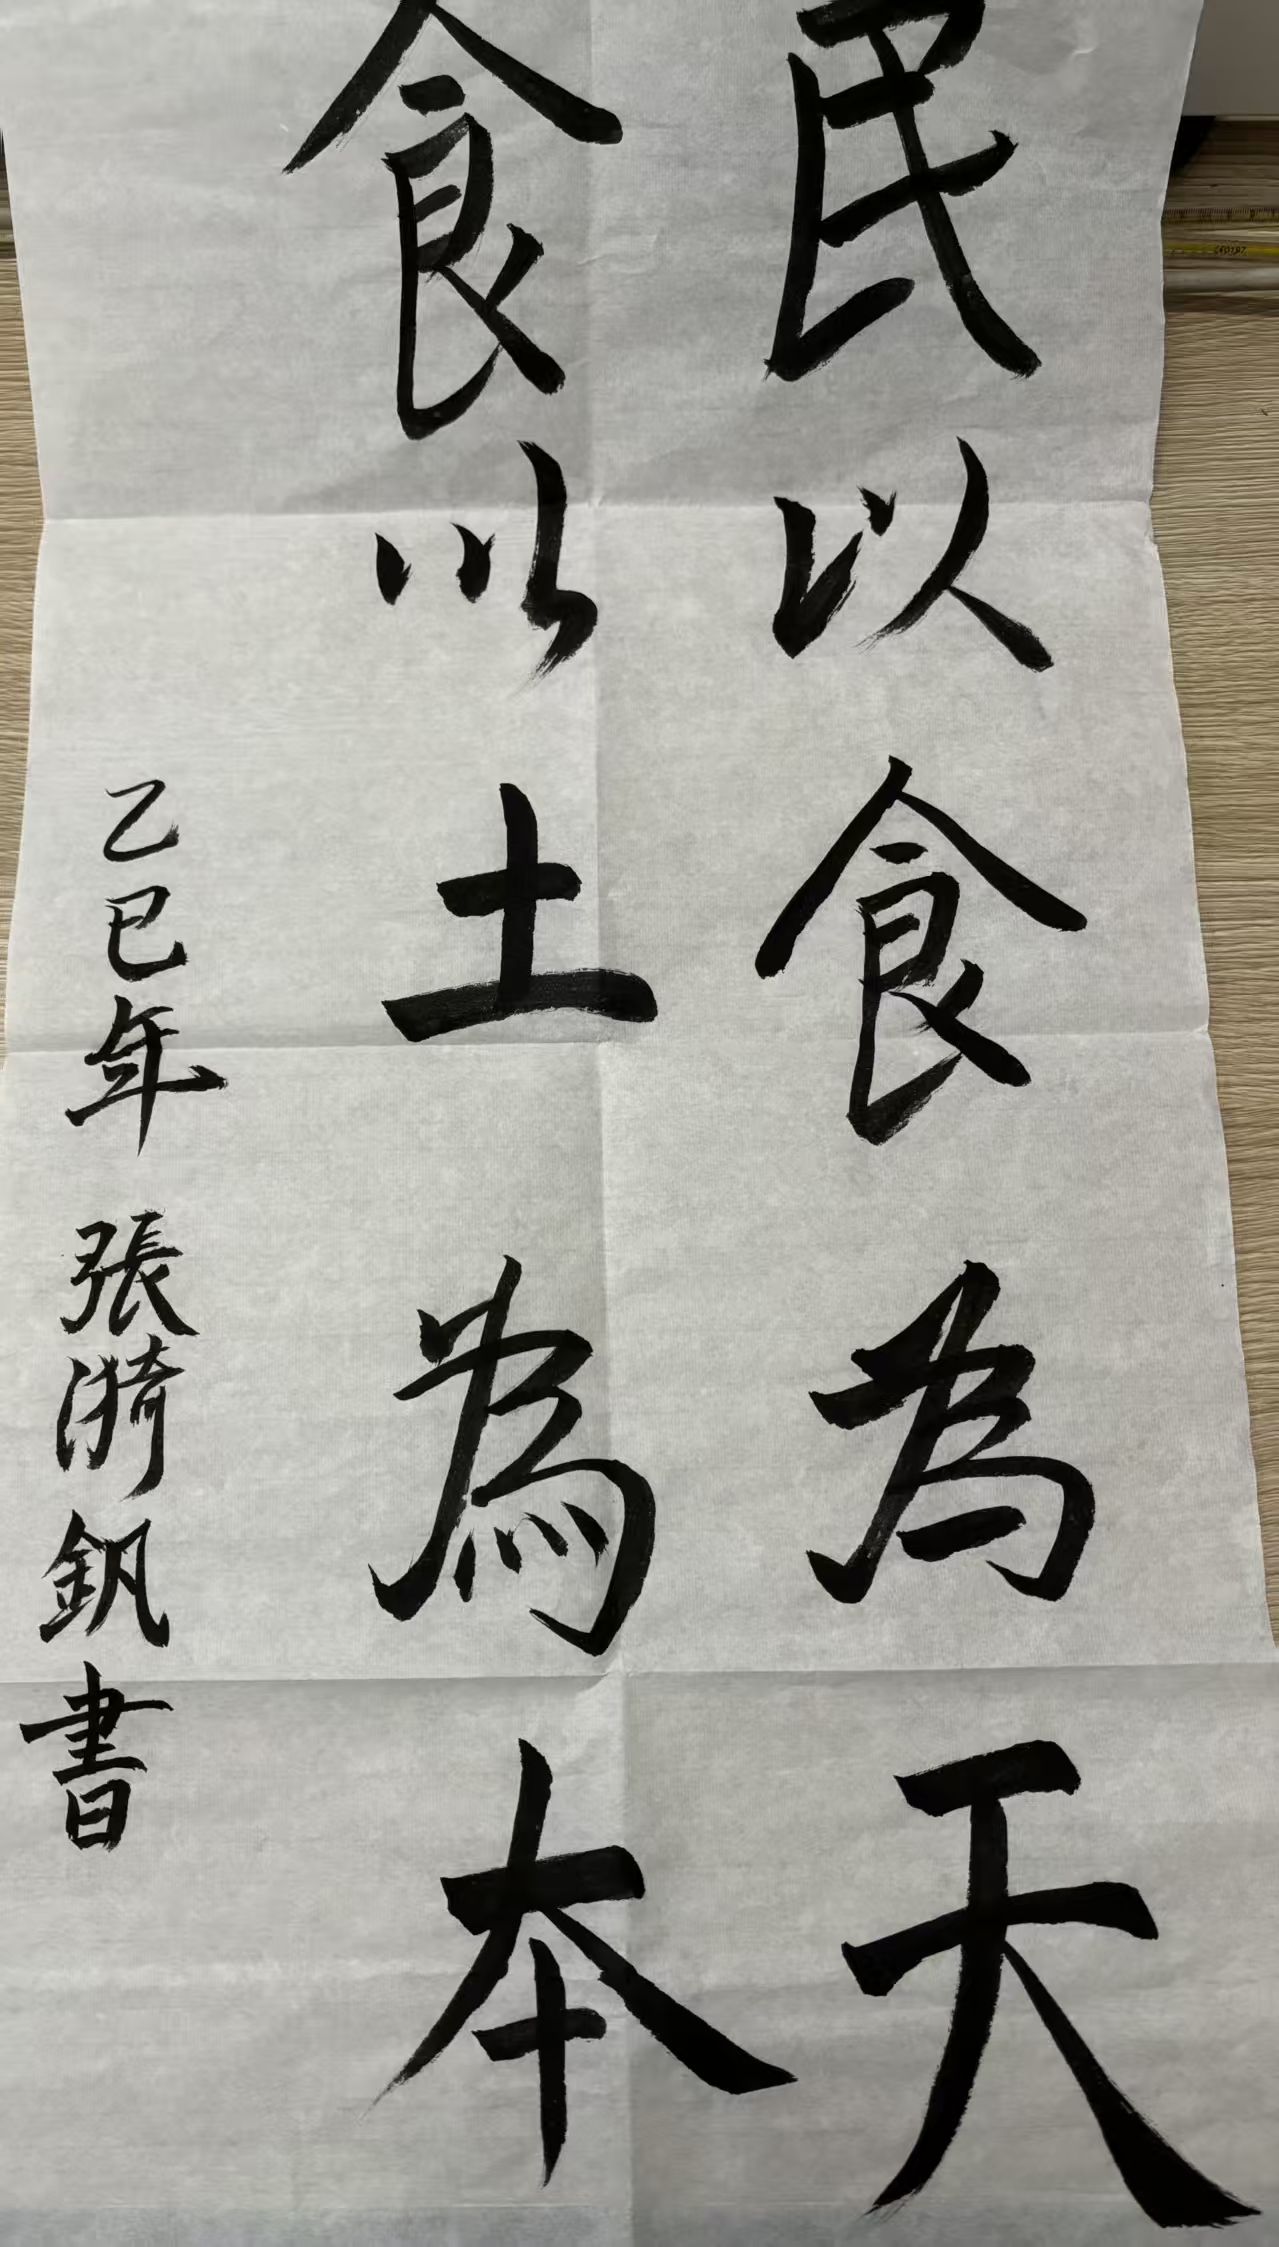 民以食為天
食以土為本
乙巳年 張漪釩書